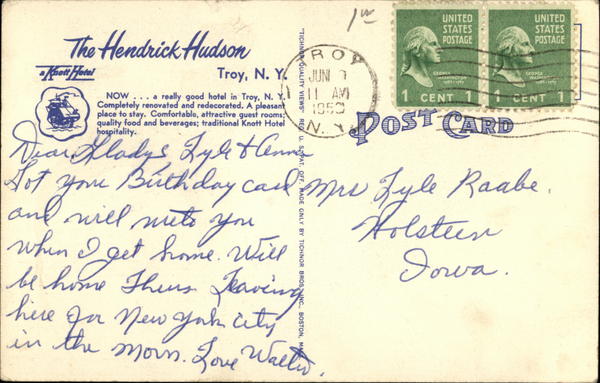 The Hendrick Hudson
a Knott Hotel
Troy, N. Y.
NOW . . . a really good hotel in Troy, N. Y.
Completely renovated and redecorated. A pleasant
place to stay. Comfortable, attractive guest rooms;
quality food and beverages; traditional Knott Hotel
hospitality.
Dear Gladys Lyle & Anna
Got your Birthday card
and will write to you
when I get home. Will
be home Thurs. Leaving
here for New York City
in the morn. Love Walter.
"TICHNOR QUALITY VIEWS" REG. U. S. PAT. OFF. MADE ONLY BY TICHNOR BROS., INC., BOSTON, MASS.
TROY
JUN
11 AM
N. Y.
UNITED STATES POSTAGE
GEORGE WASHINGTON
1 CENT 1
UNITED STATES POSTAGE
GEORGE WASHINGTON
1 CENT 1
POST CARD
Mrs Lyle Raabe.
Holstein
Iowa.